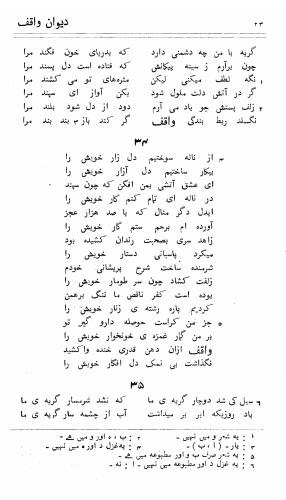 دیوان واقف
۲۳
گریه با من چه دشمنی دارد که بدریای خون فگند مرا
چون برآرم ز سینه پیکانش که فتاده است دل پسند مرا
۱ نگه لطف میکنی لیکن مژه‌های تو می کشند مرا
گر در آتش دلت ملول شود بکن آواز ای سپند مرا
۲ زلف پستش جو یاد می آرم دود از دل شود بلند مرا
نگسلد ربط بندگی واقف گر کند باز ۳ بند بند مرا
۳۴
۴ از ناله سوختیم دل زار خویش را
بیکار ساختیم دل آزار خویش را
ای عشق آتشی بمن افگن که چون سپند
در ناله ای تمام کنم کار خویش را
ایدل دگر منال که با صد هزار عجز
آورده ام برحم ستم گار خویش را
زاهد سری بصحبت رندان کشیده بود
میکرد پاسبانی دستار خویش را
شرمنده ساخت شرح پریشانی خودم
زلفت کشاد چون سر طومار خویش را
بوده است کفر ناقص ما ننگ برهمن
کردیم پاره رشته ی زنار خویش را
۵ جز من کراست حوصله دارو گیر تو
بر من گمار غمزه ی خونخوار خویش را
واقف ازان دهن قدری خنده واکشید
نگذاشت بی نمک دل افگار خویش را
۳۵
۶ سیل کی شد دوچار گریه ی ما که نشد شرمسار گریه ی ما
یاد روزیکه ابر بر میداشت آب از چشمه سار گریه ی ما
۱ : یه شعر و میں نہیں - ۲ : ب ، ه اور و میں ہے -
۳ : یار - ( ا ، ب ) - ۴ : یه غزل د اور ه میں نہیں -
۵ : یه شعر صرف ب و اور مطبوعه میں ہے -
۶ : یه غزل د اور مطبوعه میں نہیں - ا : نه -